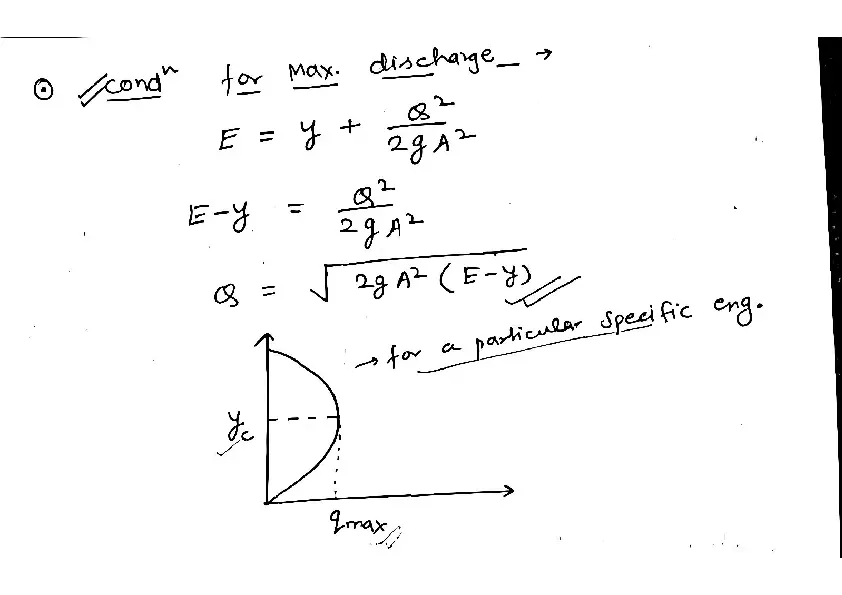 ⊙ condⁿ for Max. discharge →
E = y + Q²/2gA²
E-y = Q²/2gA²
Q = √2gA² (E-y)
→ for a particular specific eng.
yc
qmax